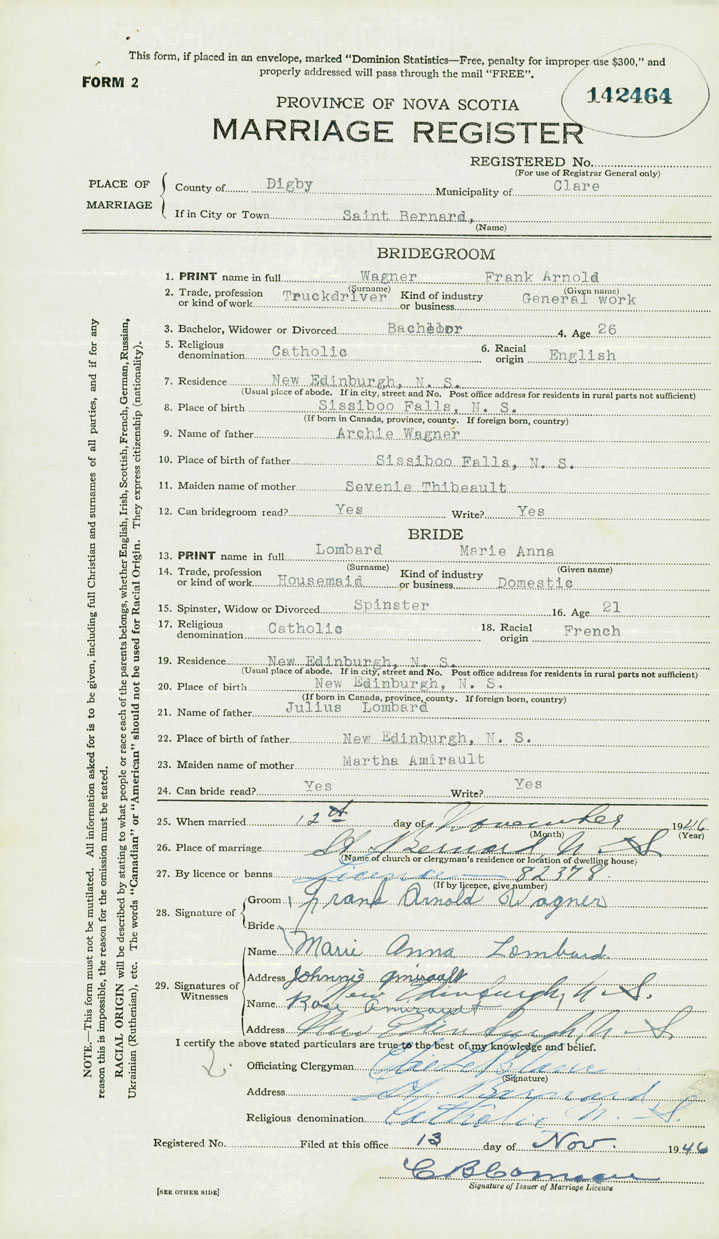 This form, if placed in an envelope, marked "Dominion Statistics—Free, penalty for improper use $300," and
properly addressed will pass through the mail "FREE".
FORM 2
142464
PROVINCE OF NOVA SCOTIA
MARRIAGE REGISTER
REGISTERED No.
(For use of Registrar General only)
PLACE OF MARRIAGE
County of Digby Municipality of Clare
If in City or Town Saint Bernard,
(Name)
BRIDEGROOM
1. PRINT name in full Wagner Frank Arnold
(Surname) (Given name)
2. Trade, profession or kind of work Truckdriver Kind of industry or business General work
3. Bachelor, Widower or Divorced Bachelor 4. Age 26
5. Religious denomination Catholic 6. Racial origin English
7. Residence New Edinburgh, N. S.
(Usual place of abode. If in city, street and No. Post office address for residents in rural parts not sufficient)
8. Place of birth Sissiboo Falls, N. S.
(If born in Canada, province, county. If foreign born, country)
9. Name of father Archie Wagner
10. Place of birth of father Sissiboo Falls, N. S.
11. Maiden name of mother Sevenie Thibeault
12. Can bridegroom read? Yes Write? Yes
BRIDE
13. PRINT name in full Lombard Marie Anna
(Surname) (Given name)
14. Trade, profession or kind of work Housemaid Kind of industry or business Domestic
15. Spinster, Widow or Divorced Spinster 16. Age 21
17. Religious denomination Catholic 18. Racial origin French
19. Residence New Edinburgh, N. S.
(Usual place of abode. If in city, street and No. Post office address for residents in rural parts not sufficient)
20. Place of birth New Edinburgh, N. S.
(If born in Canada, province, county. If foreign born, country)
21. Name of father Julius Lombard
22. Place of birth of father New Edinburgh, N. S.
23. Maiden name of mother Martha Amirault
24. Can bride read? Yes Write? Yes
25. When married 12th day of November 1946
(Month) (Year)
26. Place of marriage St. Bernard N. S.
(Name of church or clergyman's residence or location of dwelling house)
27. By licence or banns Licence — 82378
(If by licence, give number)
28. Signature of
Groom Frank Arnold Wagner
Bride
Marie Anna Lombard
29. Signatures of Witnesses
Name
Address Johnnie Amirault
New Edinburgh, N. S.
Name Rose Amirault
Address New Edinburgh, N. S.
I certify the above stated particulars are true to the best of my knowledge and belief.
Officiating Clergyman
(Signature)
Address St. Bernard
Religious denomination Catholic N. S.
Registered No. Filed at this office 13 day of Nov. 1946
Signature of Issuer of Marriage Licence
[SEE OTHER SIDE]
NOTE.—This form must not be mutilated. All information asked for is to be given, including full Christian and surnames of all parties, and if for any
reason this is impossible, the reason for the omission must be stated.
RACIAL ORIGIN will be described by stating to what people or race each of the parents belongs, whether English, Irish, Scottish, French, German, Russian,
Ukrainian (Ruthenian), etc. The words "Canadian" or "American" should not be used for Racial Origin. They express citizenship (nationality).